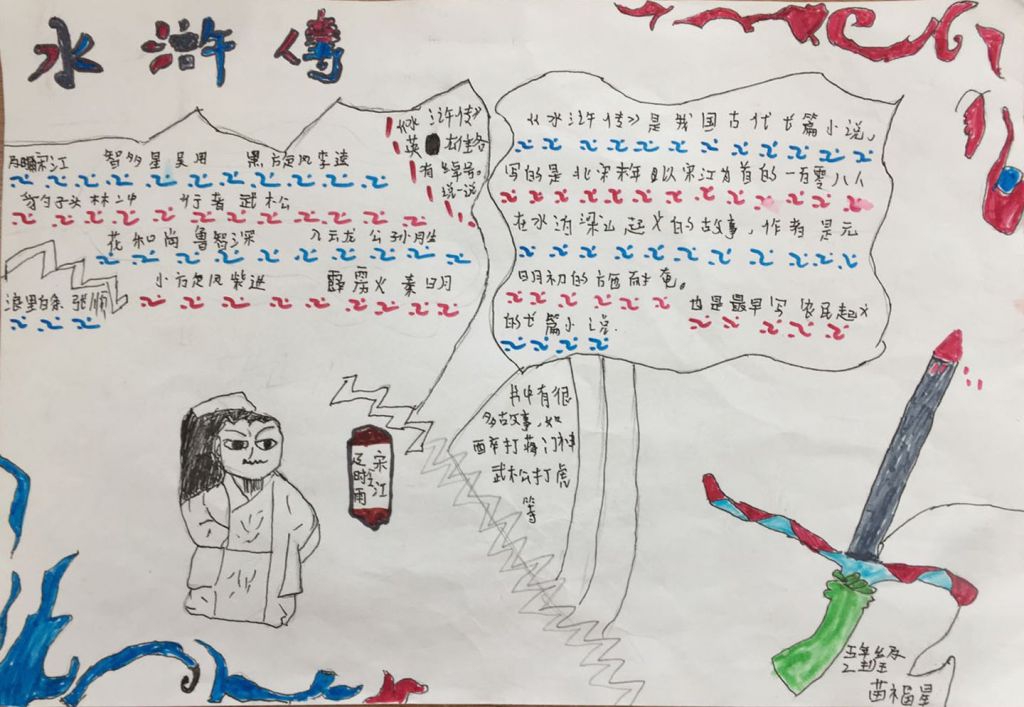 水浒傳
《水浒传》
英 树生各
有绰号。
说一说
及時雨宋江 智多星吴用 黑旋风李逵
豹子头林冲 行者武松
花和尚鲁智深 入云龙公孙胜
小旋风柴进 霹雳火秦明
浪里白条张顺
《水浒传》是我国古代长篇小说,
写的是北宋末年以宋江为首的一百零八人
在水泊梁山起义的故事,作者是元
明初的施耐庵。
也是最早写农民起义
的长篇小说.
书中有很
多故事,如
醉打蒋门神
武松打虎
等
宋江
及时雨
五年级
2班
苗福星